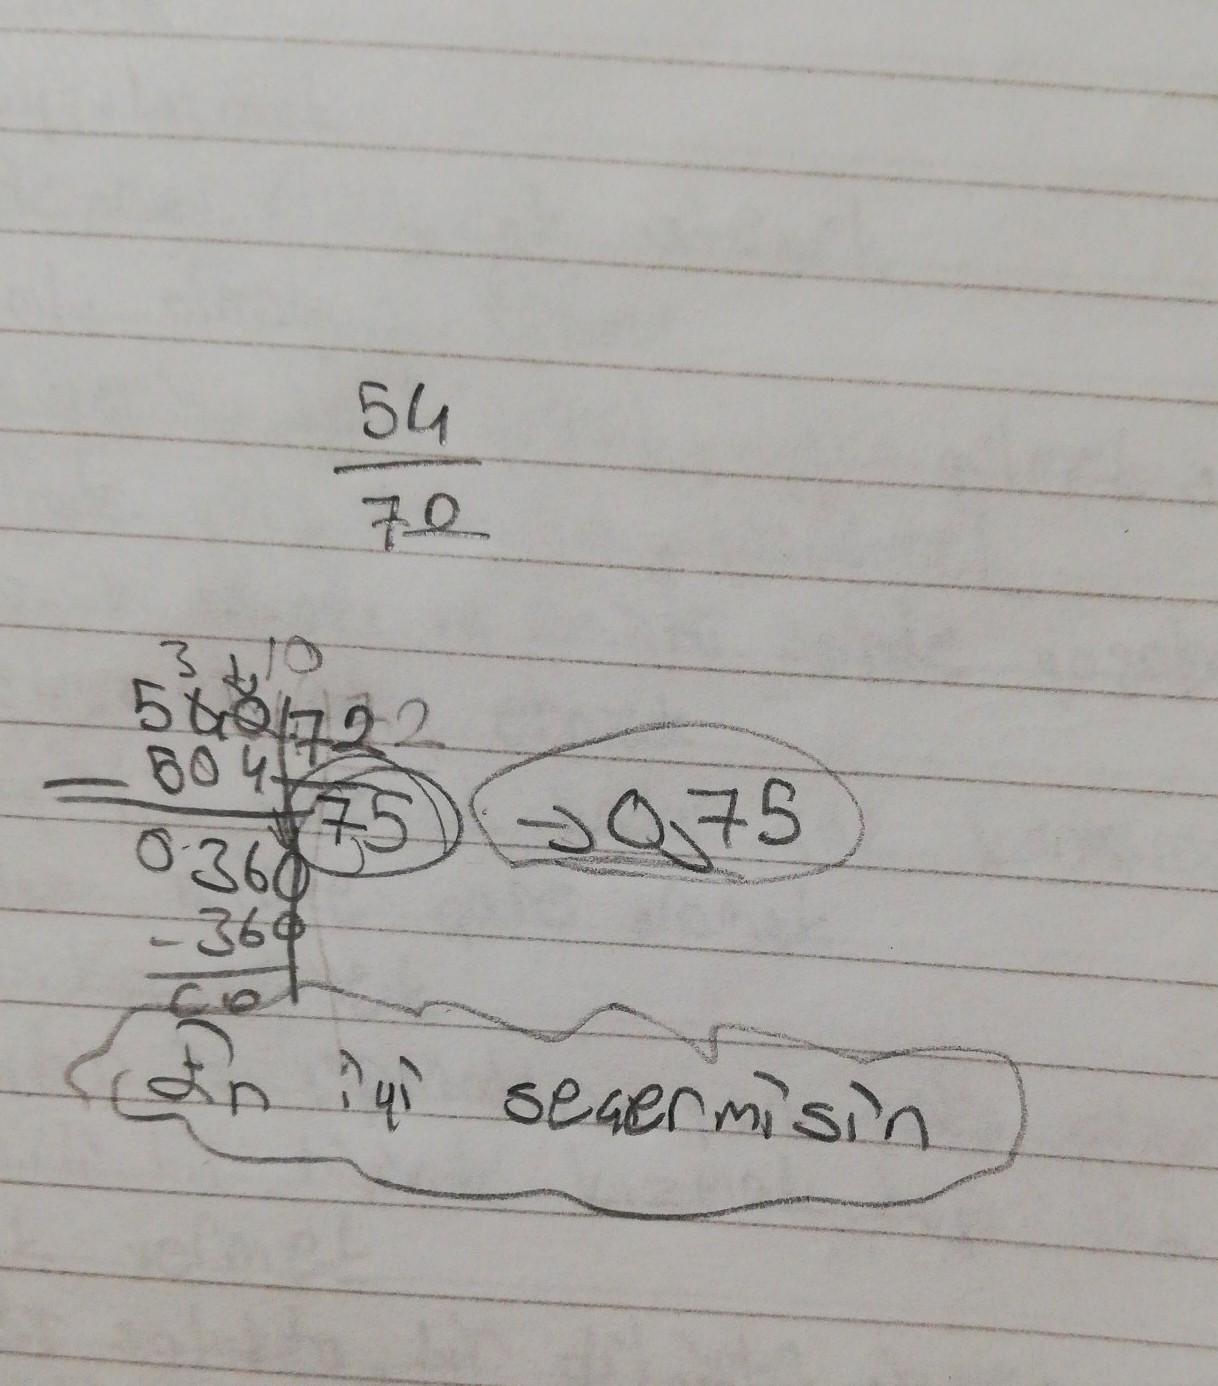 54
70
3 10
540 72 2
- 504
75 → 0,75
0360
- 360
00
En iyi seçermisin